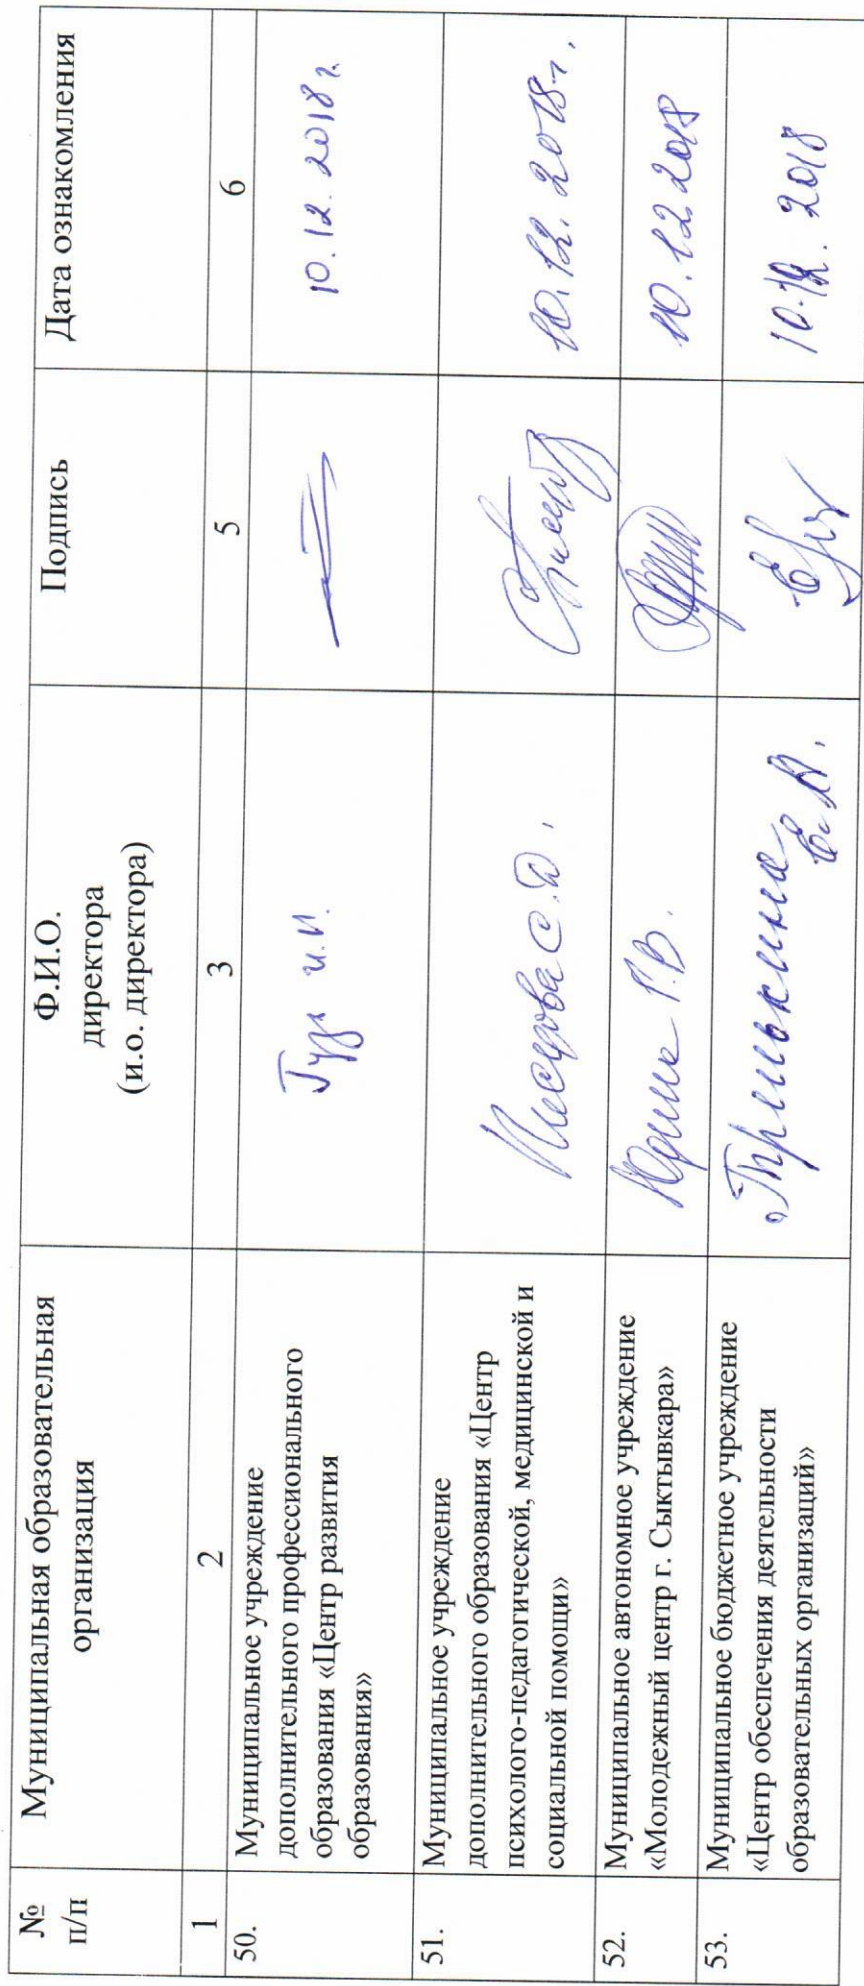 №
п/п
Муниципальная образовательная
организация
Ф.И.О.
директора
(и.о. директора)
Подпись
Дата ознакомления
1
2
3
5
6
50.
Муниципальное учреждение
дополнительного профессионального
образования «Центр развития
образования»
И.И.
10.12.2018г.
51.
Муниципальное учреждение
дополнительного образования «Центр
психолого-педагогической, медицинской и
социальной помощи»
С.Д.
10.12.2018г.
52.
Муниципальное автономное учреждение
«Молодежный центр г. Сыктывкара»
Юдина Г.В.
10.12.2018
53.
Муниципальное бюджетное учреждение
«Центр обеспечения деятельности
образовательных организаций»
Тренькина
Е.А.
10.12.2018